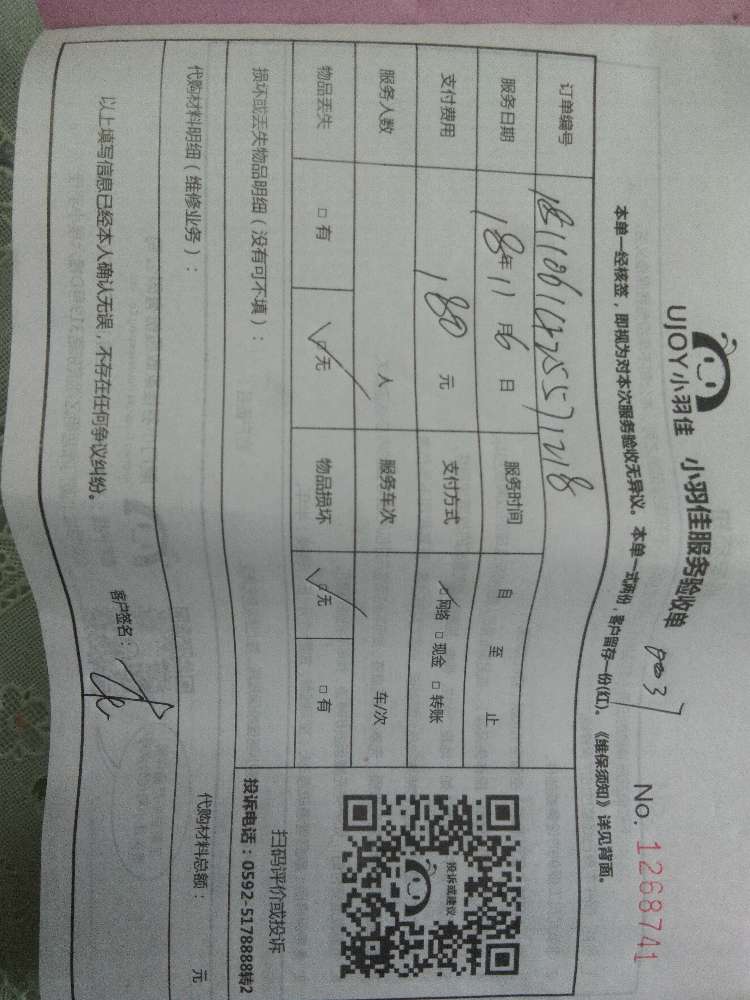 UJOY小羽佳 小羽佳服务验收单 No. 1268741
本单一经核签，即视为对本次服务验收无异议。本单一式两份，客户留存一份(红)。《维保须知》详见背面。
订单编号
服务日期 18年11月6日 服务时间 自 至 止
支付费用 180元 支付方式 ☑网络 □现金 □转账
服务人数 人 服务车次 车/次
物品丢失 □有 ☑无 物品损坏 ☑无 □有
损坏或丢失物品明细（没有可不填）：
投诉或建议
扫码评价或投诉
投诉电话：0592-5178888转2
代购材料明细（维修业务）： 代购材料总额： 元
以上填写信息已经本人确认无误，不存在任何争议纠纷。
客户签名：